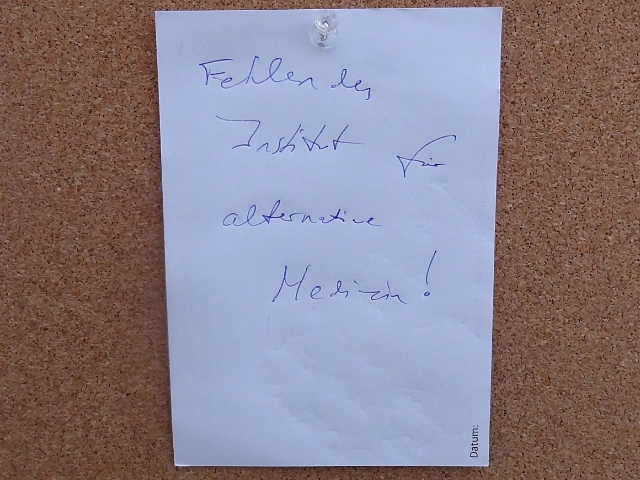 Fehlen des
Institut für
alternative
Medizin!
Datum: